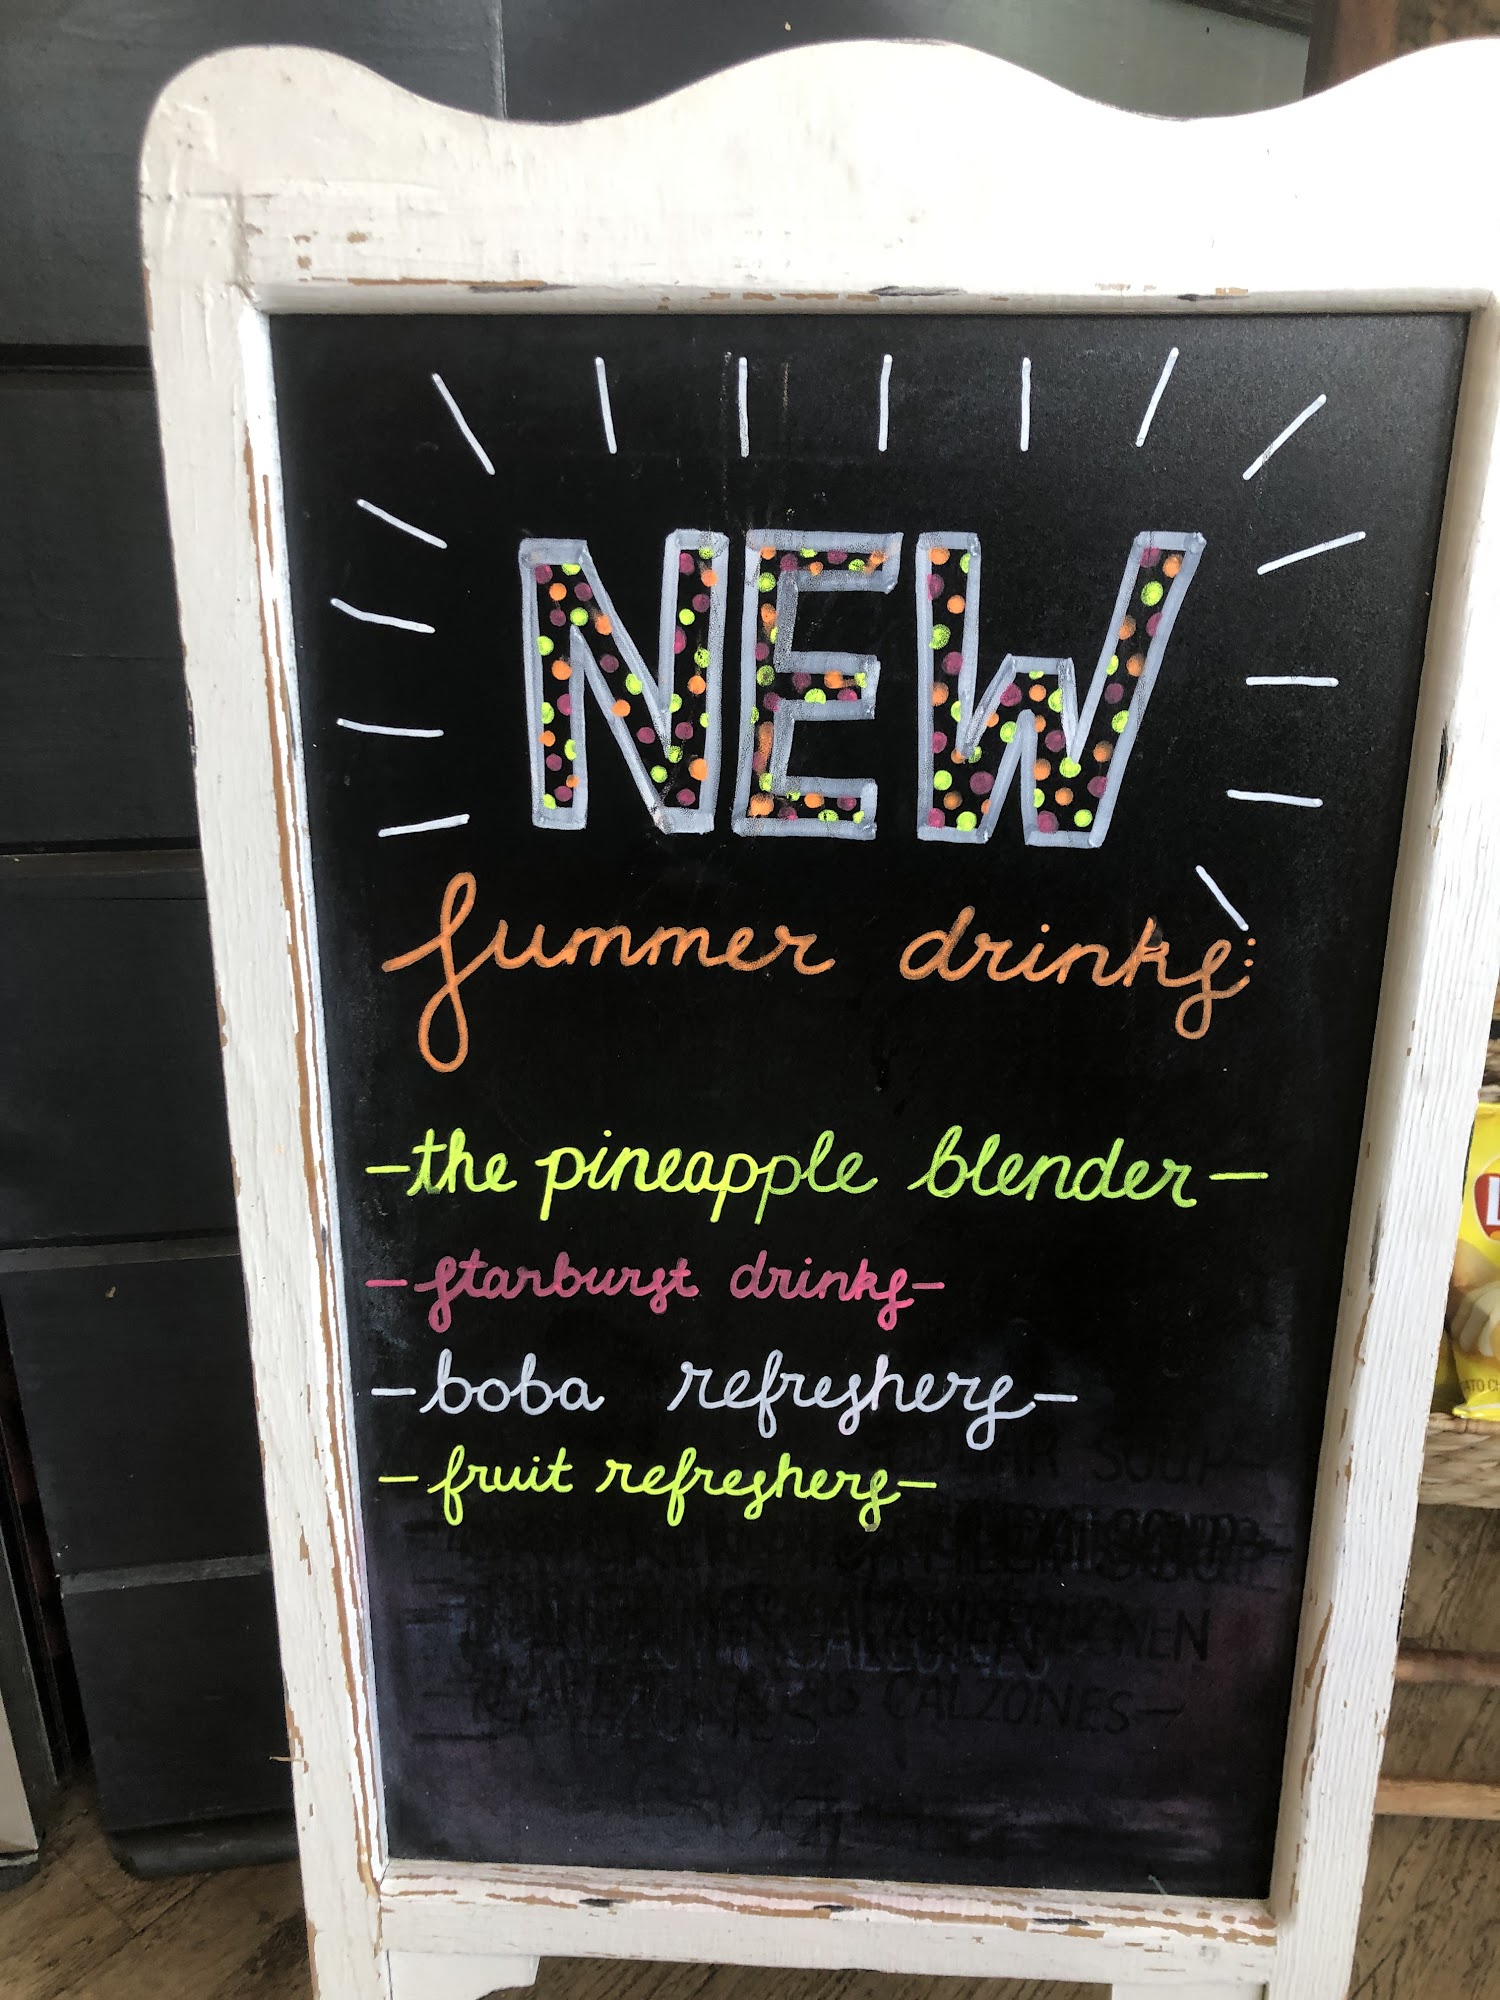 NEW
summer drinks:
-the pineapple blender-
-starburst drinks-
-boba refreshers-
-fruit refreshers-
SOUP-
CALZONES-